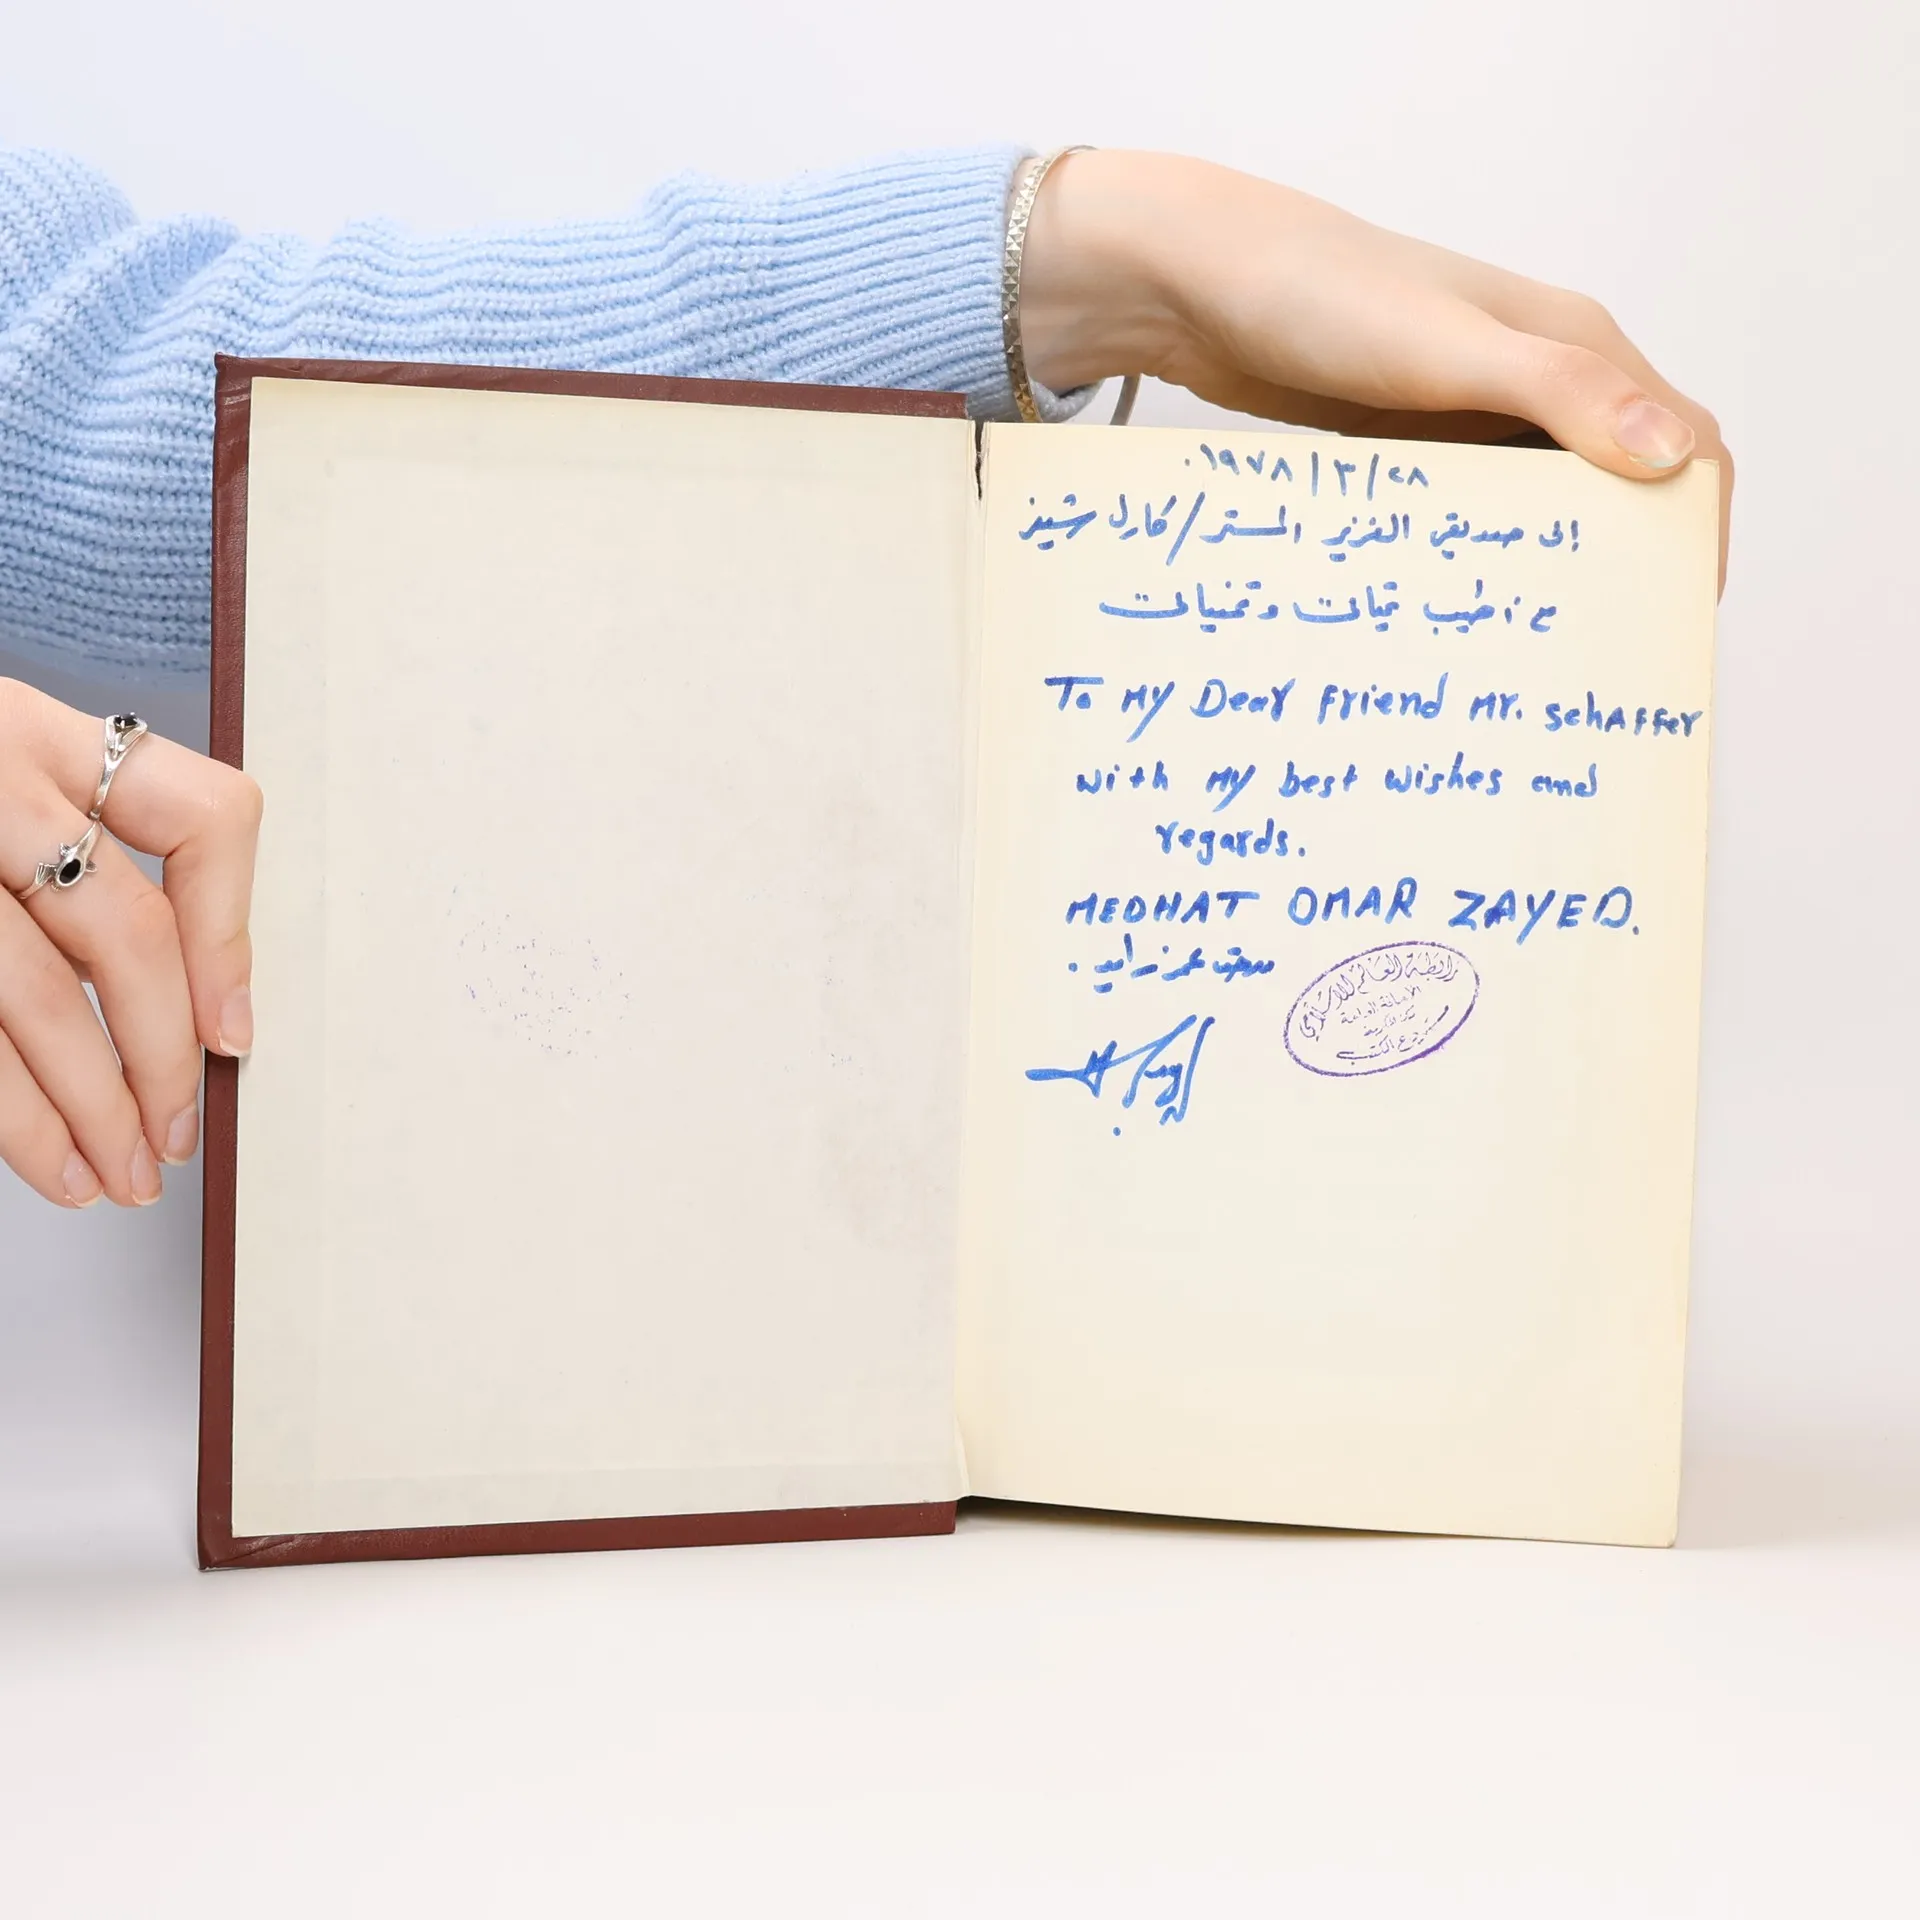 ١٩٧٨/٣/٢٨.
إلى صديقي العزيز المستر/كارل شيفر
مع أطيب تحياتي وتمنياتي
To My Dear Friend Mr. schaffer
with my best wishes and
regards.
MEDHAT OMAR ZAYED.
مدحت عمر زايد.
رابطة العالم الإسلامي
الأمانة العامة